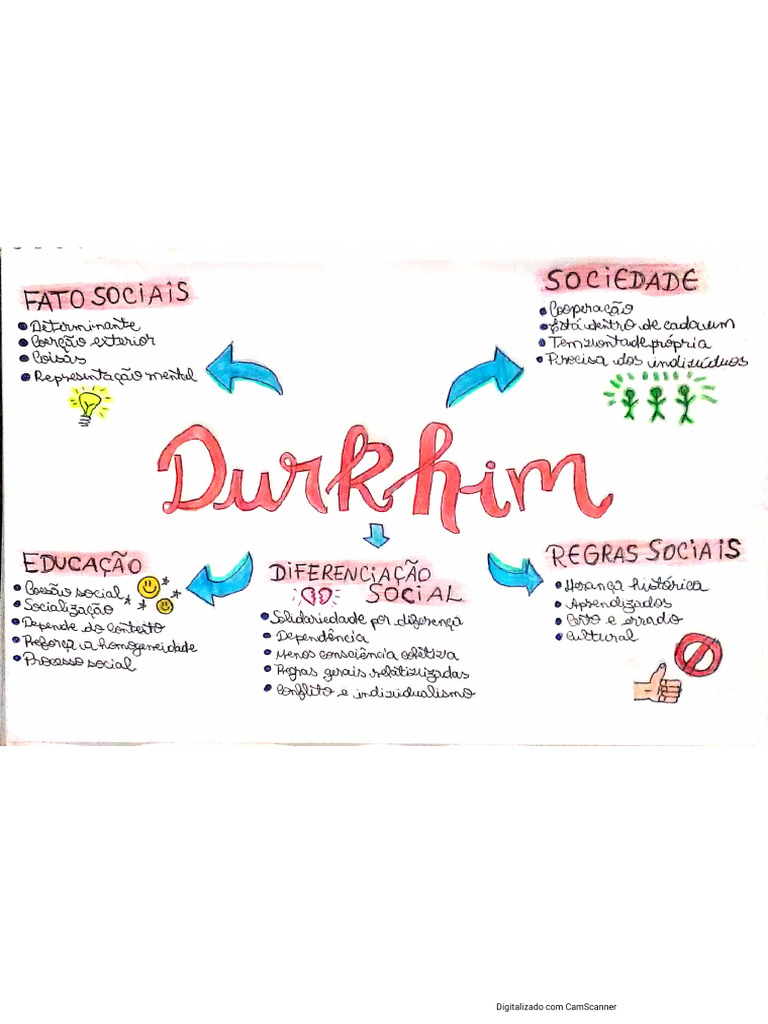 FATO SOCIAIS
• Determinante
• Coerção exterior
• Coisas
• Representação mental
SOCIEDADE
• Cooperação
• Está dentro de cada um
• Tem vontade própria
• Precisa dos indivíduos
Durkhim
EDUCAÇÃO
• Coesão social
• Socialização
• Depende do contexto
• Reforça a homogeneidade
• Processo social
DIFERENCIAÇÃO
SOCIAL
• Solidariedade por diferença
• Dependência
• Menos consciência coletiva
• Regras gerais relativizadas
• Conflito e individualismo
REGRAS SOCIAIS
• Herança histórica
• Aprendizados
• Certo e errado
• Cultural
Digitalizado com CamScanner